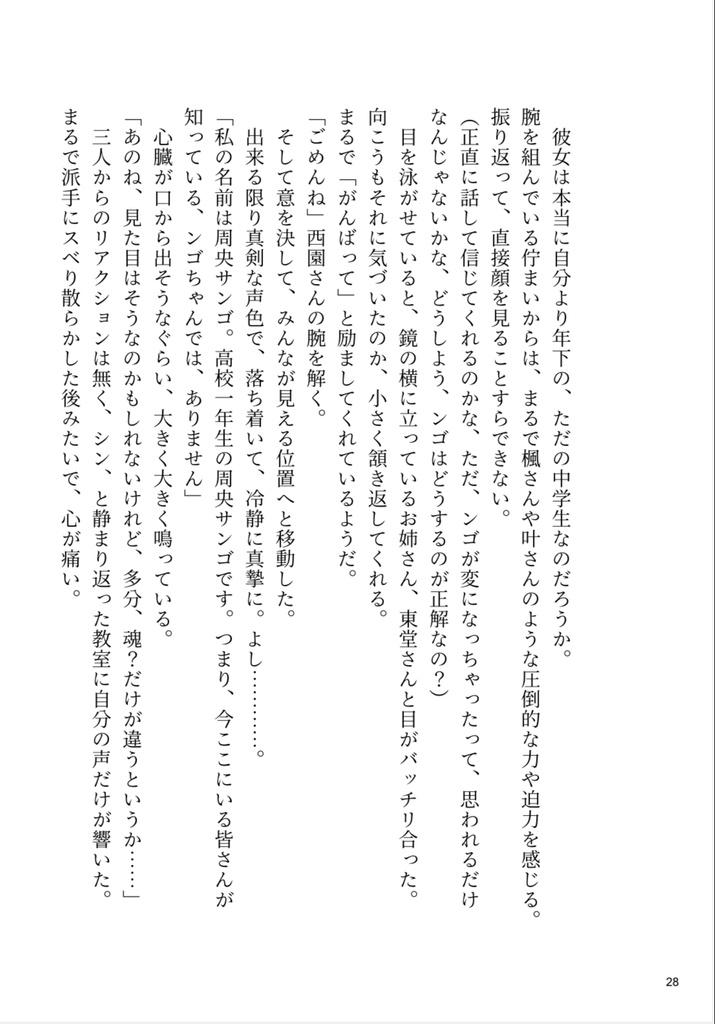 彼女は本当に自分より年下の、ただの中学生なのだろうか。
腕を組んでいる佇まいからは、まるで楓さんや叶さんのような圧倒的な力や迫力を感じる。
振り返って、直接顔を見ることすらできない。
（正直に話して信じてくれるのかな、ただ、ンゴが変になっちゃったって、思われるだけ
なんじゃないかな、どうしよう、ンゴはどうするのが正解なの？）
　目を泳がせていると、鏡の横に立っているお姉さん、東堂さんと目がバッチリ合った。
向こうもそれに気づいたのか、小さく頷き返してくれる。
まるで「がんばって」と励ましてくれているようだ。
「ごめんね」西園さんの腕を解く。
　そして意を決して、みんなが見える位置へと移動した。
　出来る限り真剣な声色で、落ち着いて、冷静に真摯に。よし…………。
「私の名前は周央サンゴ。高校一年生の周央サンゴです。つまり、今ここにいる皆さんが
知っている、ンゴちゃんでは、ありません」
　心臓が口から出そうなぐらい、大きく大きく鳴っている。
「あのね、見た目はそうなのかもしれないけれど、多分、魂？だけが違うというか……」
　三人からのリアクションは無く、シン、と静まり返った教室に自分の声だけが響いた。
まるで派手にスベり散らかした後みたいで、心が痛い。
28